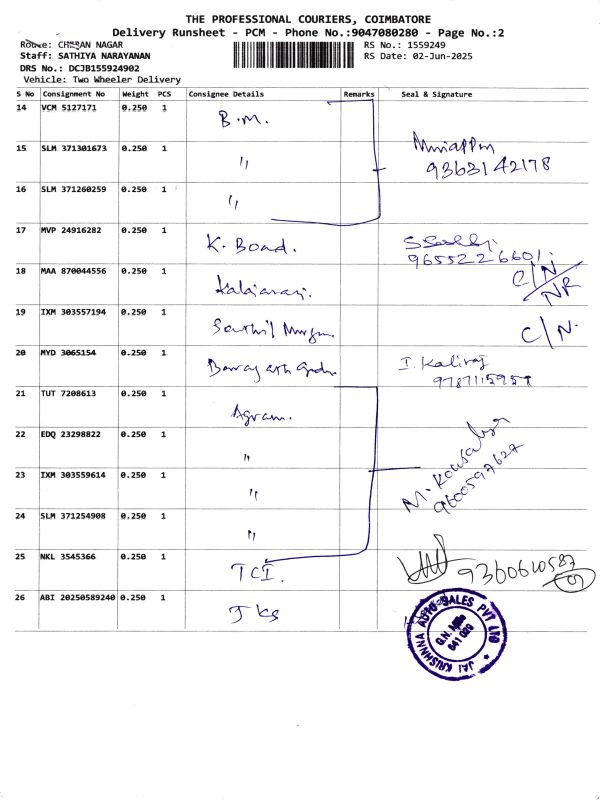 THE PROFESSIONAL COURIERS, COIMBATORE
Delivery Runsheet - PCM - Phone No.:9047080280 - Page No.:2
Route: CHERAN NAGAR
RS No.: 1559249
Staff: SATHIYA NARAYANAN
RS Date: 02-Jun-2025
DRS No.: DCJB155924902
Vehicle: Two Wheeler Delivery
S No Consignment No Weight PCS Consignee Details Remarks Seal & Signature
14 VCM 5127171 0.250 1 B.M.
15 SLM 371301673 0.250 1 " 9363142178
16 SLM 371260259 0.250 1 "
17 MVP 24916282 0.250 1 K. Board. 9655226601
18 MAA 870044556 0.250 1 C/N NR
19 IXM 303557194 0.250 1 C/N.
20 MYD 3065154 0.250 1 I. Kaliraj
21 TUT 7208613 0.250 1 Agram.
22 EDQ 23298822 0.250 1 " M. Kousalya
9600597627
23 IXM 303559614 0.250 1 "
24 SLM 371254908 0.250 1 "
25 NKL 3545366 0.250 1 TCI. 9360610587
26 ABI 20250589240 0.250 1 JKS
JAI KRISHNNA AUTO SALES PVT LTD
G.N. Mills
641 029